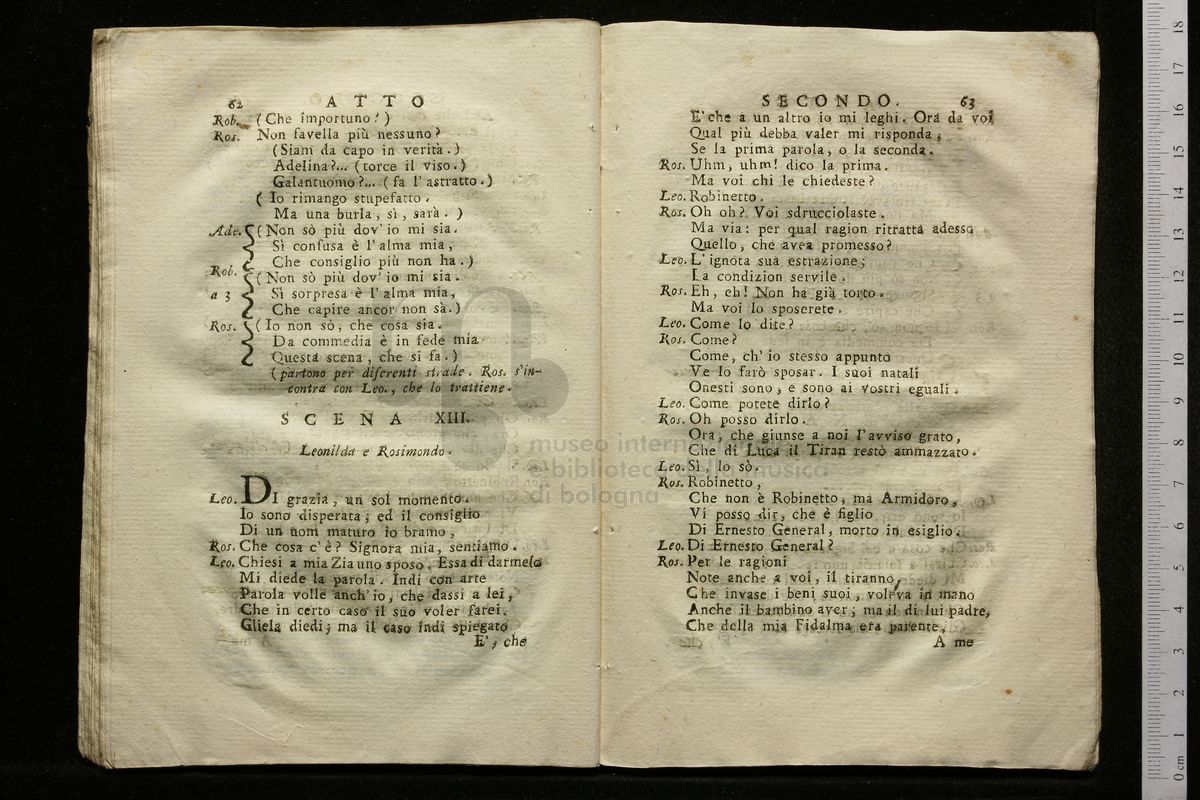 62 ATTO
Rob. (Che importuno!)
Ros. Non favella più nessuno?
(Siam da capo in verità.)
Adelina?... (torce il viso.)
Galantuomo?... (fa l'astratto.)
( Io rimango stupefatto.
Ma una burla, sì, sarà. )
Ade. (Non sò più dov' io mi sia.
Sì confusa è l' alma mia,
Che consiglio più non ha.)
Rob. (Non sò più dov' io mi sia.
a 3 Sì sorpresa è l' alma mia,
Che capire ancor non sà.)
Ros. (Io non sò, che cosa sia.
Da commedia è in fede mia
Questa scena, che si fa.)
(partono per differenti strade. Ros. s'in-
contra con Leo., che lo trattiene.
SCENA XIII.
Leonilda e Rosimondo.
Leo. DI grazia, un sol momento.
Io sono disperata; ed il consiglio
Di un uom maturo io bramo,
Ros. Che cosa c'è? Signora mia, sentiamo.
Leo. Chiesi a mia Zia uno sposo. Essa di darmelo
Mi diede la parola. Indi con arte
Parola volle anch'io, che dassi a lei,
Che in certo caso il suo voler farei.
Gliela diedi; ma il caso indi spiegato
E', che
SECONDO. 63
E' che a un altro io mi leghi. Ora da voi
Qual più debba valer mi risponda,
Se la prima parola, o la seconda.
Ros. Uhm, uhm! dico la prima.
Ma voi chi le chiedeste?
Leo. Robinetto.
Ros. Oh oh? Voi sdrucciolaste.
Ma via: per qual ragion ritratta adesso
Quello, che avea promesso?
Leo. L' ignota sua estrazione;
La condizion servile.
Ros. Eh, eh! Non ha già torto.
Ma voi lo sposerete.
Leo. Come lo dite?
Ros. Come?
Come, ch' io stesso appunto
Ve lo farò sposar. I suoi natali
Onesti sono, e sono ai vostri eguali.
Leo. Come potete dirlo?
Ros. Oh posso dirlo.
Ora, che giunse a noi l'avviso grato,
Che di Luca il Tiran restò ammazzato.
Leo. Sì, lo sò.
Ros. Robinetto,
Che non è Robinetto, ma Armidoro,
Vi posso dir, che è figlio
Di Ernesto General, morto in esiglio.
Leo. Di Ernesto General?
Ros. Per le ragioni
Note anche a voi, il tiranno,
Che invase i beni suoi, voleva in mano
Anche il bambino aver; ma il di lui padre,
Che della mia Fidalma era parente,
A me
museo internazionale
e biblioteca della musica
di bologna
0 cm 1 2 3 4 5 6 7 8 9 10 11 12 13 14 15 16 17 18